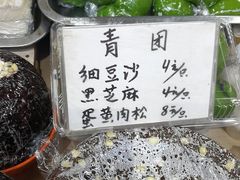 青团
细豆沙 4元/只
黑芝麻 4元/只
蛋黄肉松 8元/只